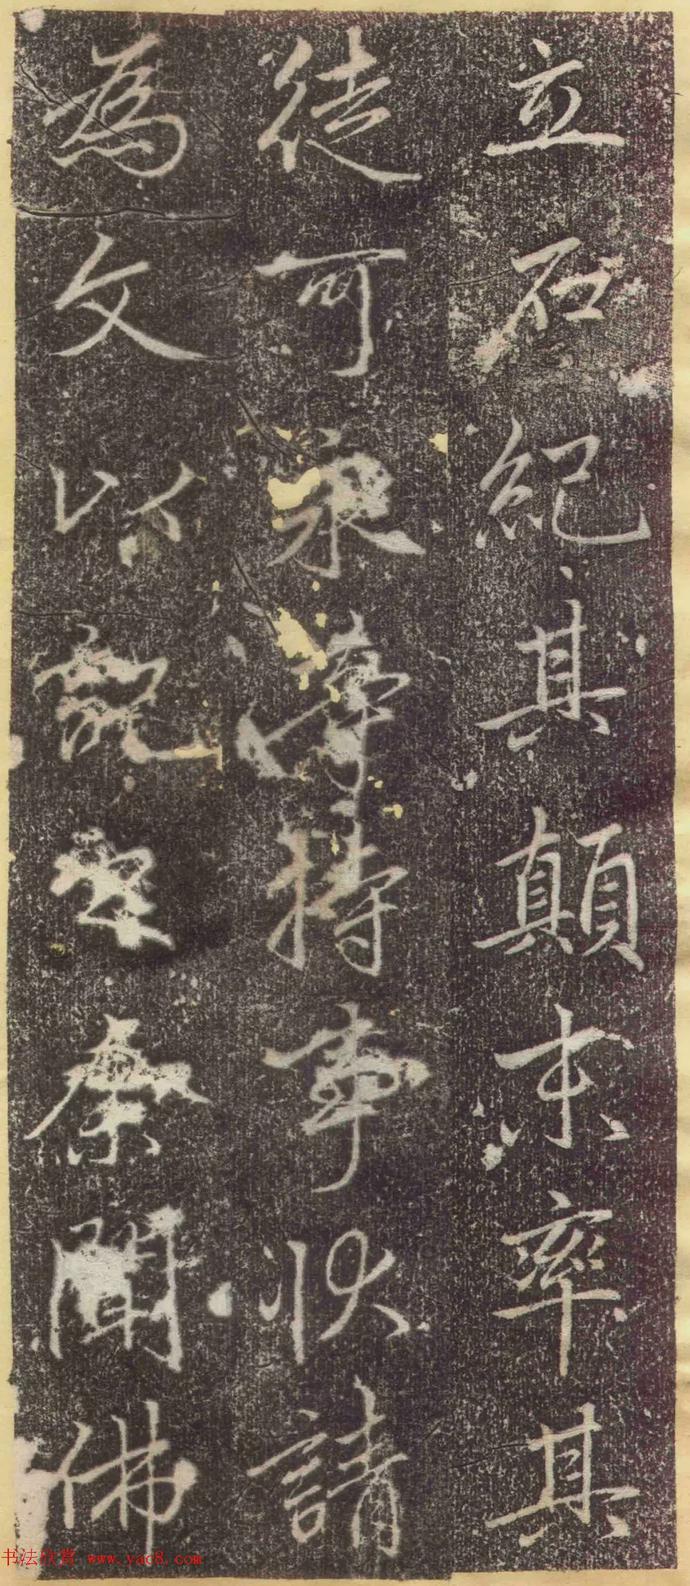 立石紀其顛末率其
徒可永持事狀請
為文以記余聞佛
书法欣赏 www.yac8.com